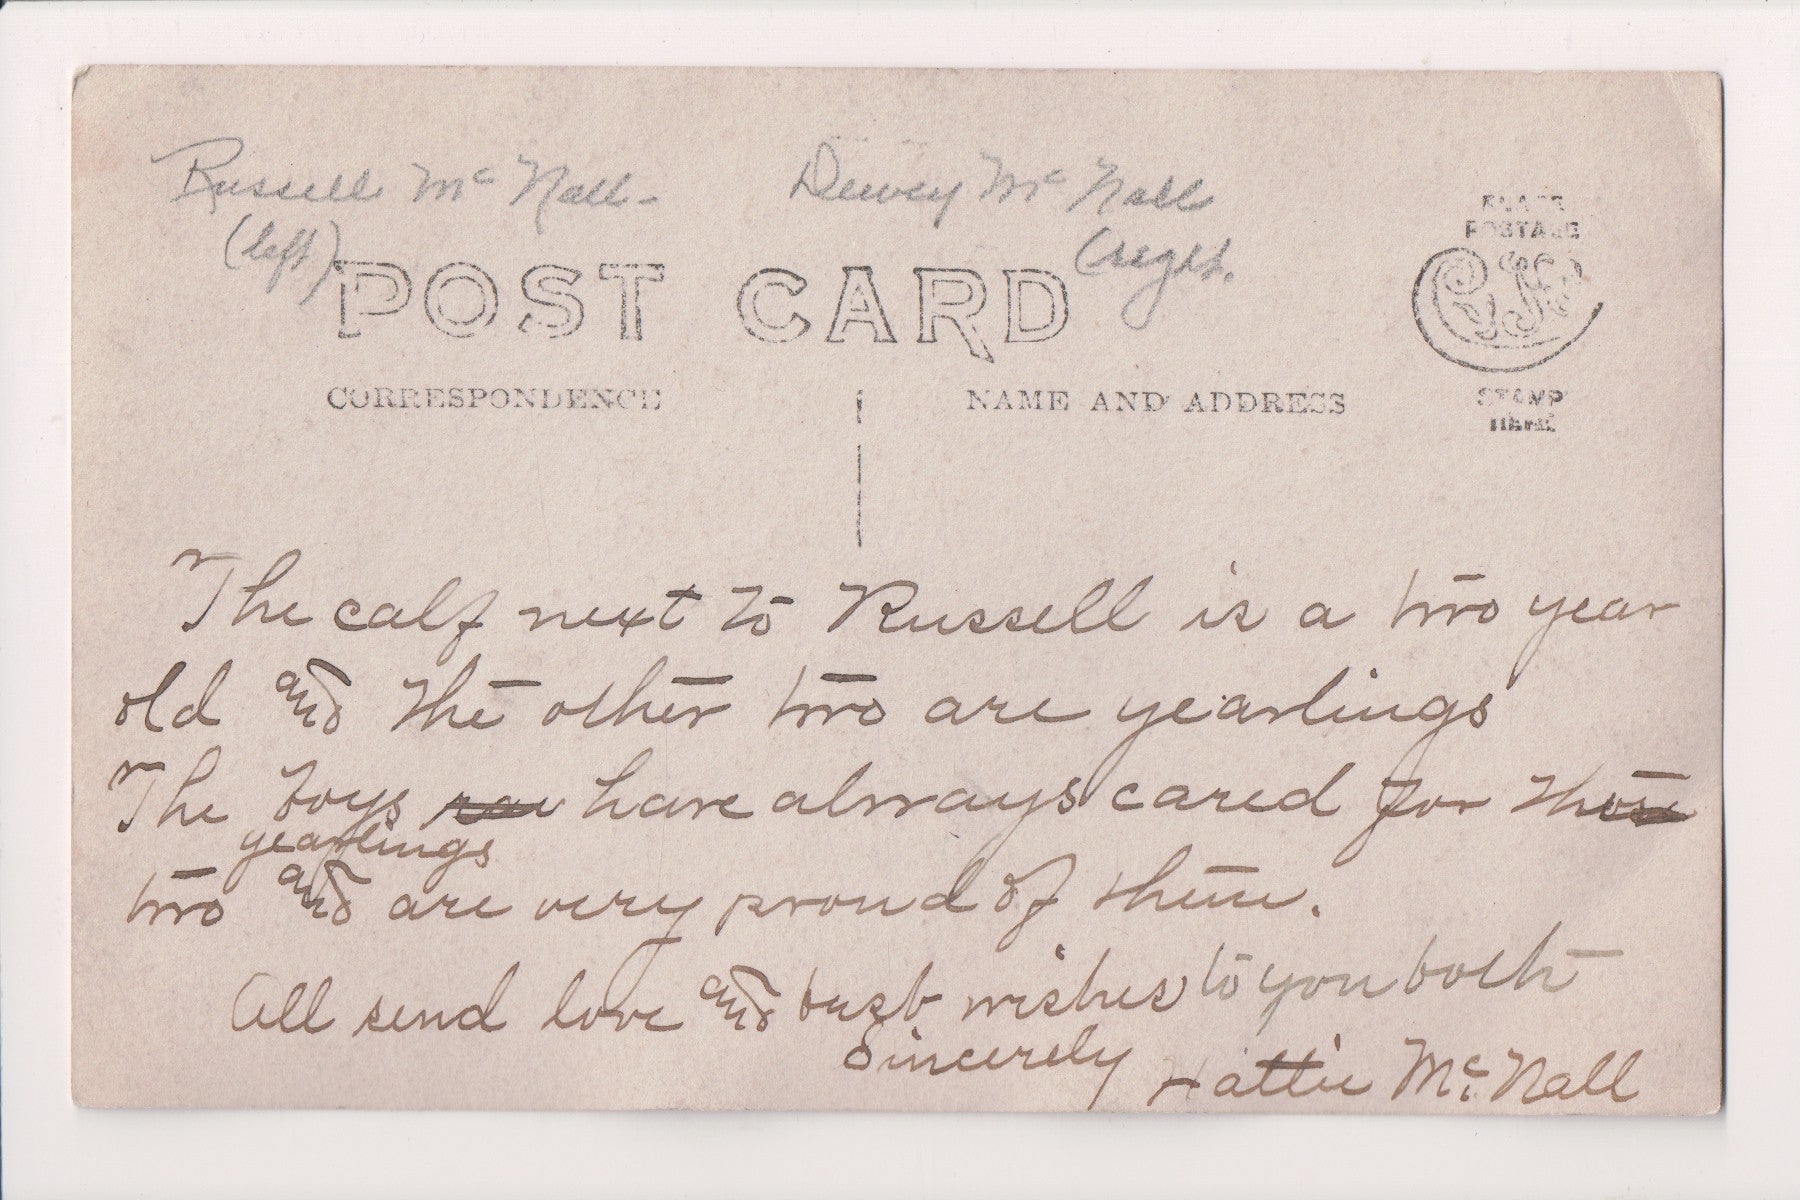 Russell Mc Nall - Dewey Mc Nall
(left) (right.
PLACE
POSTAGE
POST CARD
STAMP
HERE
CORRESPONDENCE NAME AND ADDRESS
The calf next to Russell is a two year
old and the other two are yearlings
The boys have always cared for the
yearlings
two and are very proud of them.
All send love and best wishes to you both
Sincerely Hattie Mc. Nall